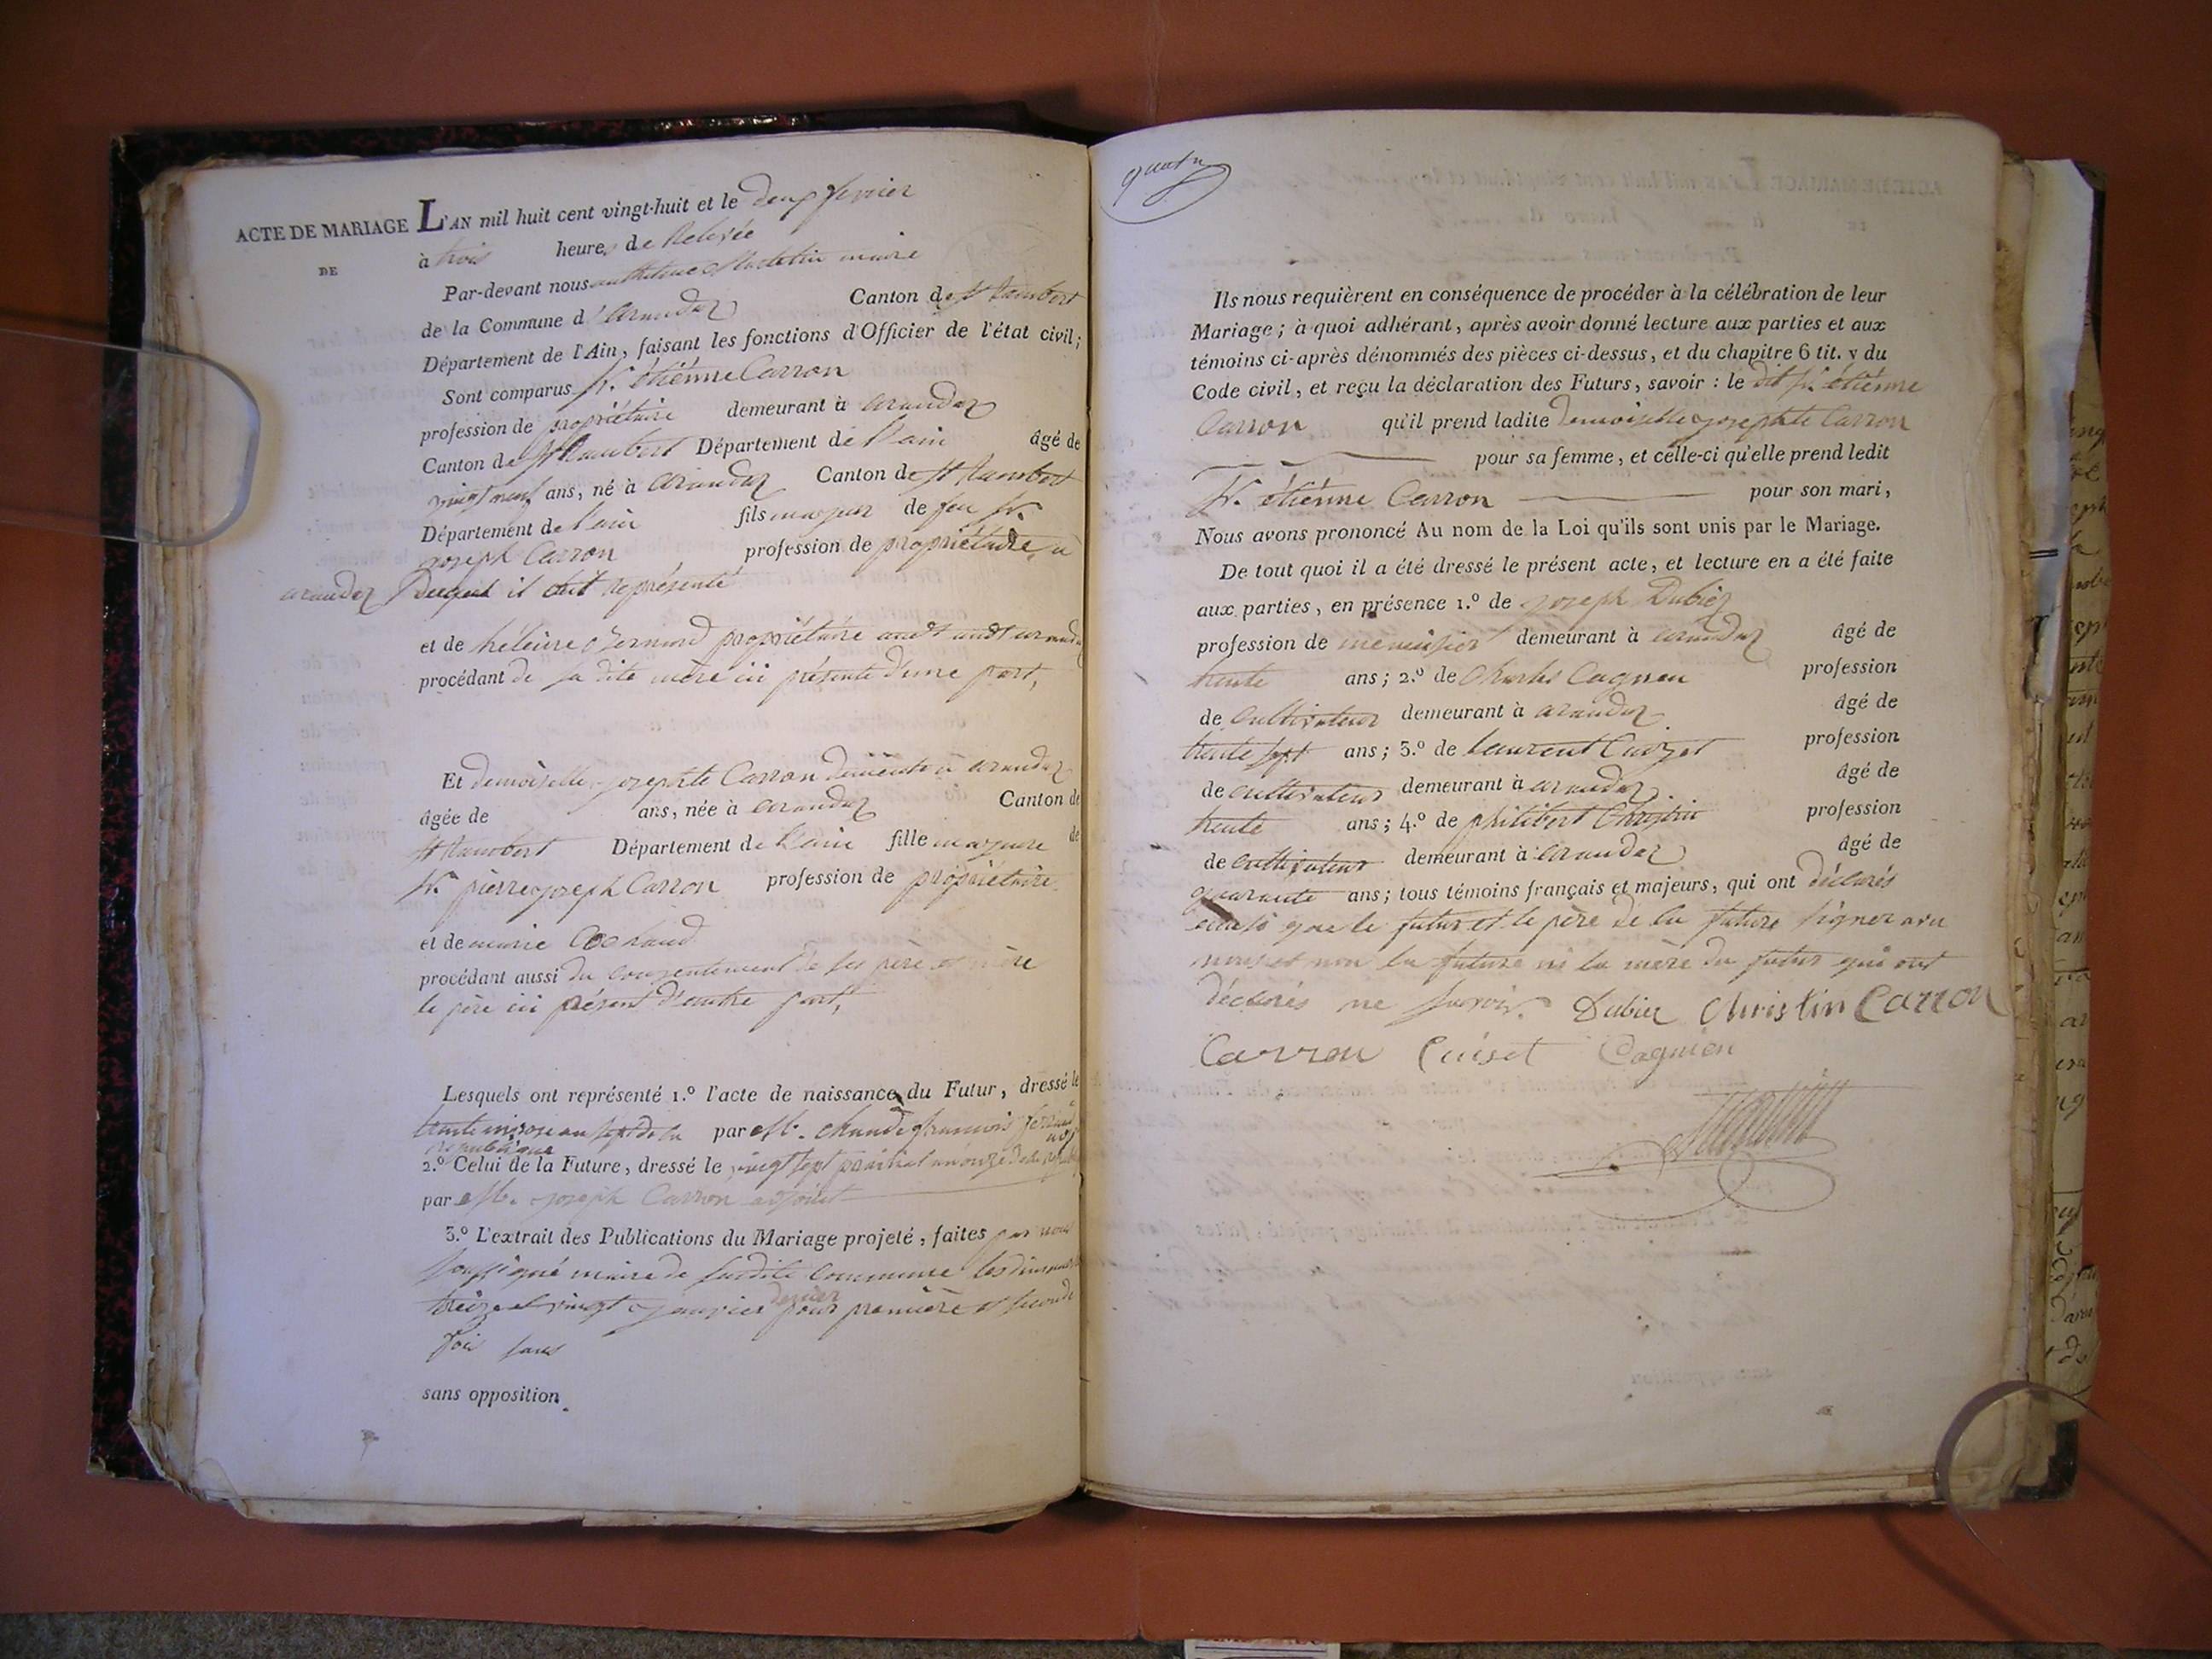 ACTE DE MARIAGE
DE
L'AN mil huit cent vingt-huit et le deux fevrier
à trois heures de Relevée
Par-devant nous maire
de la Commune d'arandaz Canton de st Rambert
Département de l'Ain, faisant les fonctions d'Officier de l'état civil;
Sont comparus Sr. étiénne Carron
profession de propriétaire demeurant à arandaz
Canton de st Rambert Département de l'ain âgé de
vingt neuf ans, né à arandaz Canton de st Rambert
Département de l'ain fils majeur de feu Sr.
joseph Carron profession de propriétaire à
arandaz duquel il ont représenté
et de héleine Bernard propriétaire
procédant de sa dite mère ici présente d'une part,
Et demoiselle josephte Carron à arandaz
âgée de ans, née à arandaz Canton de
st Rambert Département de l'ain fille majeure de
Sr. pierre joseph Carron profession de propriétaire
et de marie
procédant aussi du consentement de ses père et mère
le père ici présent d'autre part,
Lesquels ont représenté 1.º l'acte de naissance du Futur, dressé le
trente nivose an sept de la par Mr. françois
republique
2.º Celui de la Future, dressé le vingt sept prairial an onze de la
par Mr. joseph Carron adjoint
3.º L'extrait des Publications du Mariage projeté, faites par nous
soussigné maire de sudite Commune les dimanches
treize et vingt janvier dernier pour première et seconde
fois sans
sans opposition.
Ils nous requièrent en conséquence de procéder à la célébration de leur
Mariage; à quoi adhérant, après avoir donné lecture aux parties et aux
témoins ci-après dénommés des pièces ci-dessus, et du chapitre 6 tit. v du
Code civil, et reçu la déclaration des Futurs, savoir : le dit Sr. étiénne
Carron qu'il prend ladite demoiselle josephte Carron
pour sa femme, et celle-ci qu'elle prend ledit
Sr. étiénne Carron pour son mari,
Nous avons prononcé Au nom de la Loi qu'ils sont unis par le Mariage.
De tout quoi il a été dressé le présent acte, et lecture en a été faite
aux parties, en présence 1.º de joseph Dubiez
profession de menuisier demeurant à arandaz âgé de
trente ans; 2.º de Charles Cagnien profession
de cultivateur demeurant à arandaz âgé de
trente sept ans; 3.º de Laurent Cuizet profession
de cultivateur demeurant à arandaz âgé de
trente ans; 4.º de philibert Christin profession
de cultivateur demeurant à arandaz âgé de
quarante ans; tous témoins français et majeurs, qui ont déclarés
que le futur et le père de la future signer avec
nous et non la future ni la mère du futur qui ont
déclarés ne savoir. Dubiez Christin Carron
Carron Cuiset Cagnien